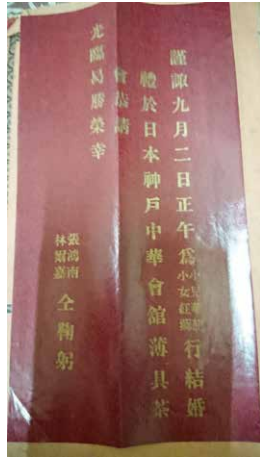 謹諏九月二日正午爲小兒華 小女紅蕖行結婚
禮於日本神戶中華會館薄具茶
會恭請
光臨曷勝榮幸
張鴻南
林爾嘉
仝鞠躬